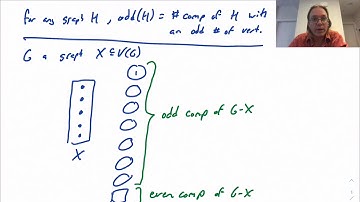 for any graph H, odd(H) = # comp of H with
an odd # of vert.
G a graph X ⊆ V(G)
1
odd comp of G-X
X
even comp of G-X